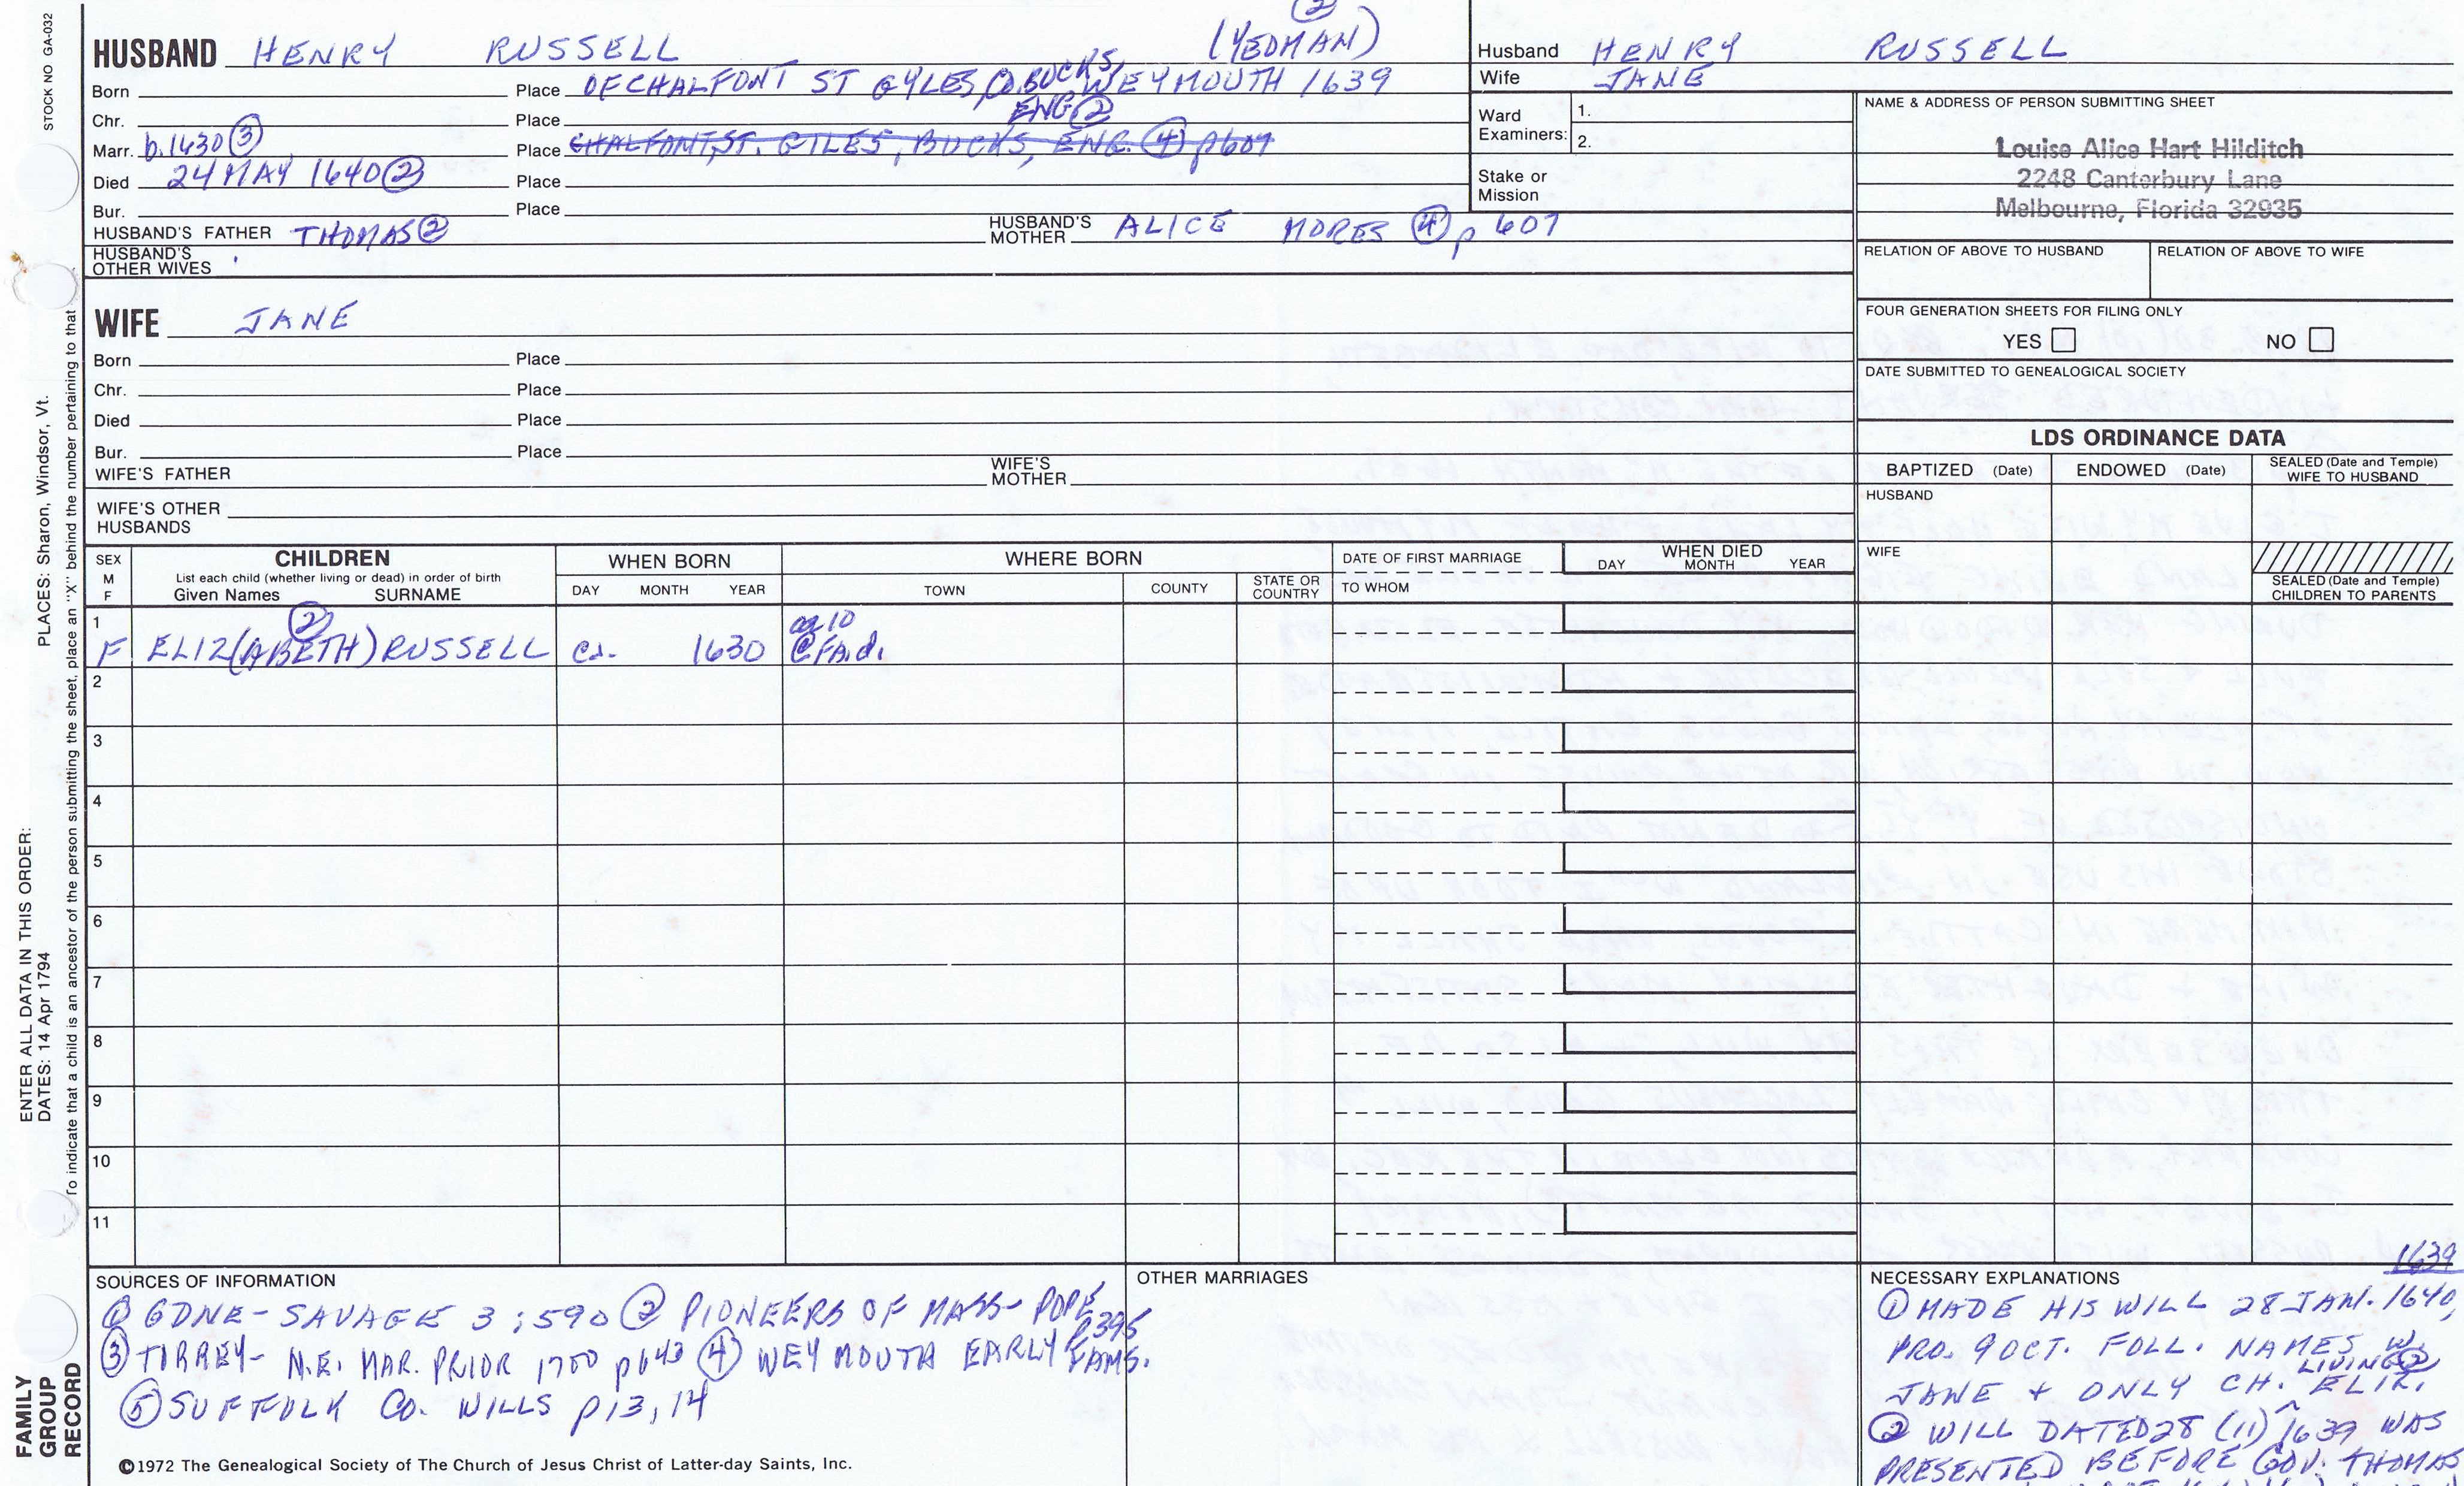 STOCK NO GA-032
②
HUSBAND HENRY RUSSELL (YEOMAN)
Born Place OF CHALFONT ST GYLES, CO. BUCKS, WEYMOUTH 1639
ENG ②
Chr. Place
Marr. b.1630 ③ Place CHALFONT, ST. GILES, BUCKS, ENG. ④ p607
Died 24 MAY 1640 ② Place
Bur. Place
HUSBAND'S FATHER THOMAS ② HUSBAND'S MOTHER ALICE MORES ④ p 607
HUSBAND'S OTHER WIVES
WIFE JANE
Born Place
Chr. Place
Died Place
Bur. Place
WIFE'S FATHER WIFE'S MOTHER
WIFE'S OTHER HUSBANDS
Husband HENRY RUSSELL
Wife JANE
Ward Examiners: 1.
2.
Stake or Mission
NAME & ADDRESS OF PERSON SUBMITTING SHEET
Louise Alice Hart Hilditch
2248 Canterbury Lane
Melbourne, Florida 32935
RELATION OF ABOVE TO HUSBAND RELATION OF ABOVE TO WIFE
FOUR GENERATION SHEETS FOR FILING ONLY
YES NO
DATE SUBMITTED TO GENEALOGICAL SOCIETY
LDS ORDINANCE DATA
BAPTIZED (Date) ENDOWED (Date) SEALED (Date and Temple) WIFE TO HUSBAND
HUSBAND
WIFE
SEALED (Date and Temple) CHILDREN TO PARENTS
SEX M F
CHILDREN
List each child (whether living or dead) in order of birth
Given Names SURNAME
WHEN BORN
DAY MONTH YEAR
WHERE BORN
TOWN COUNTY STATE OR COUNTRY
DATE OF FIRST MARRIAGE
TO WHOM
WHEN DIED
DAY MONTH YEAR
1 ② ag 10
F ELIZ(ABETH) RUSSELL ca. 1630 @ FA.d.
2
3
4
5
6
7
8
9
10
11
SOURCES OF INFORMATION
① GDNE - SAVAGE 3:590 ② PIONEERS OF MASS - POPE p395
③ TORREY - N.E. MAR. PRIOR 1700 p643 ④ WEYMOUTH EARLY FAMS.
⑤ SUFFOLK CO. WILLS p13, 14
©1972 The Genealogical Society of The Church of Jesus Christ of Latter-day Saints, Inc.
OTHER MARRIAGES
NECESSARY EXPLANATIONS
1639
① MADE HIS WILL 28 JAN. 1640,
PRO. 9 OCT. FOLL. NAMES W.
LIVING ②
JANE + ONLY CH. ELIZ.
② WILL DATED 28 (11) 1639 WAS
PRESENTED BEFORE GOV. THOMAS
ENTER ALL DATA IN THIS ORDER:
DATES: 14 Apr 1794
PLACES: Sharon, Windsor, Vt.
To indicate that a child is an ancestor of the person submitting the sheet, place an "X" behind the number pertaining to that
FAMILY
GROUP
RECORD